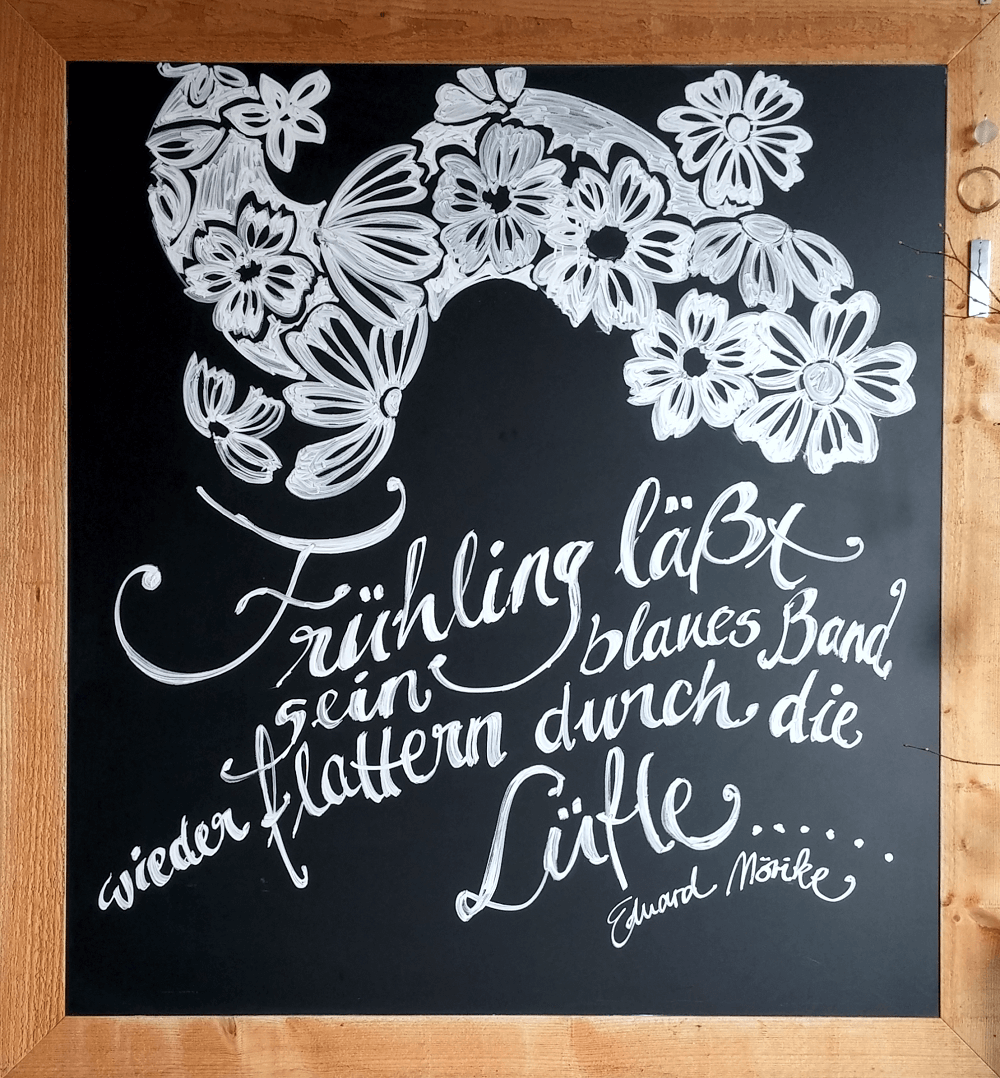 Frühling läßt
sein blaues Band
wieder flattern durch die
Lüfte......
Eduard Mörike